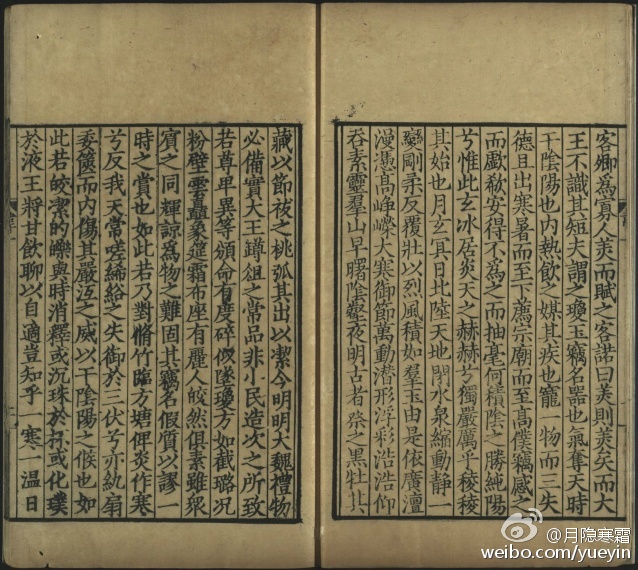 客卿爲寡人羙而賦之客諾曰羙則羙矣而大
王不識其短夫謂之瓊玉竊名器也氣奪天時
干陰陽也内熱飲之媒其疾也寵一物而三失
德且出寒暑而至下薦宗廟而至高僕竊感之
而獻欷安得不爲之而抽毫何積陰之勝純陽
兮惟此玄冰居炎天之赫赫兮獨嚴厲乎稜稜
其始也月玄冥日北陸天地閉水泉縮動静一
變剛柔反覆壯以烈風積如羣玉由是依廣澶
漫憑高崢嶸大寒御節萬動潜形浮彩浩浩仰
吞素靈羣山早曙陰壑夜明古者祭之黑牡其
藏以節祓之桃弧其出以潔今明明大魏禮物
必備實大王罇俎之常品非小民造次之所致
若尊卑異等頒命有度碎假墜瓊方如截璐况
粉壁雲矗象筵霜布座有麗人皎然俱素雖衆
賓之同輝諒爲物之難固其竊名假質以謬一
時之賞也如此若乃對脩竹臨方塘俾炎作寒
兮反我天常嗟絺綌之失御於三伏兮亦紈扇
委篋而内傷其嚴沍之威以干陰陽之候也如
此若皎潔的皪與時消釋或沉珠於抔或化璞
於液王將甘飲聊以自適豈知乎一寒一温日
@月隐寒霜
weibo.com/yueyin